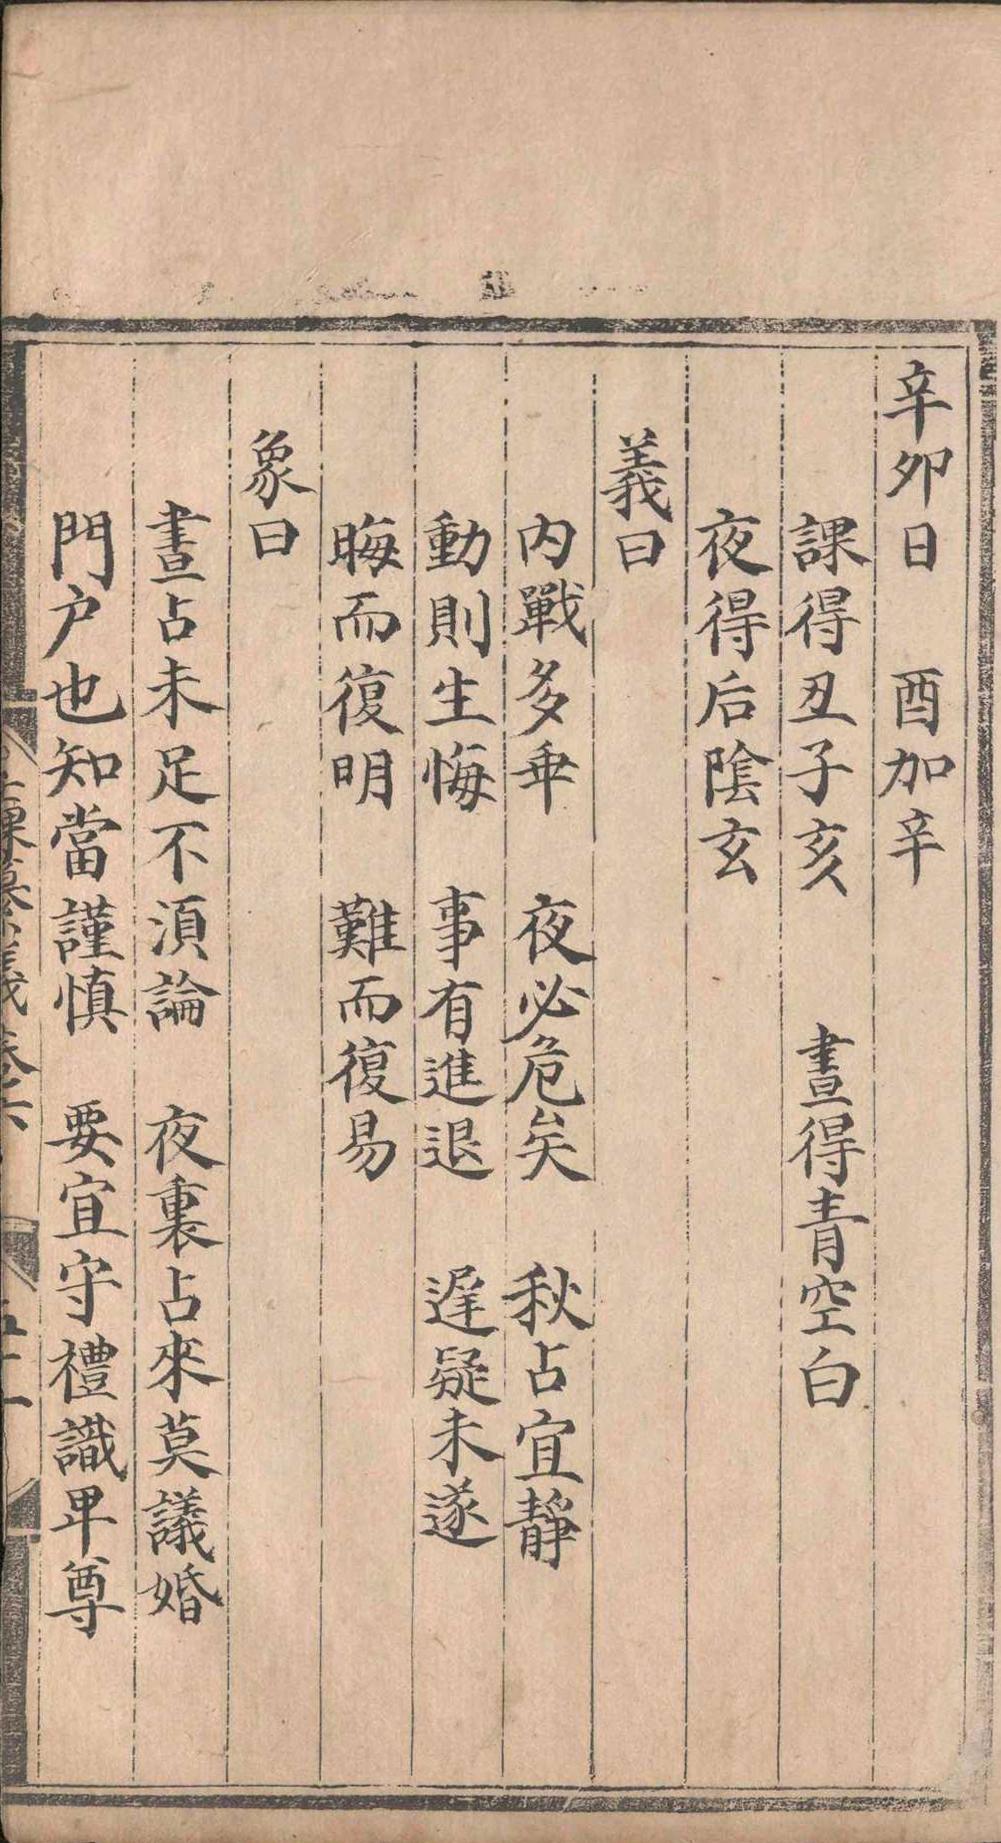 辛卯日　酉加辛
課得丑子亥　晝得青空白
夜得后陰玄
義曰
内戰多乖　夜必危矣　秋占宜靜
動則生悔　事有進退　遲疑未遂
晦而復明　難而復易
象曰
晝占未足不須論　夜裏占來莫議婚
門户也知當謹慎　要宜守禮識卑尊